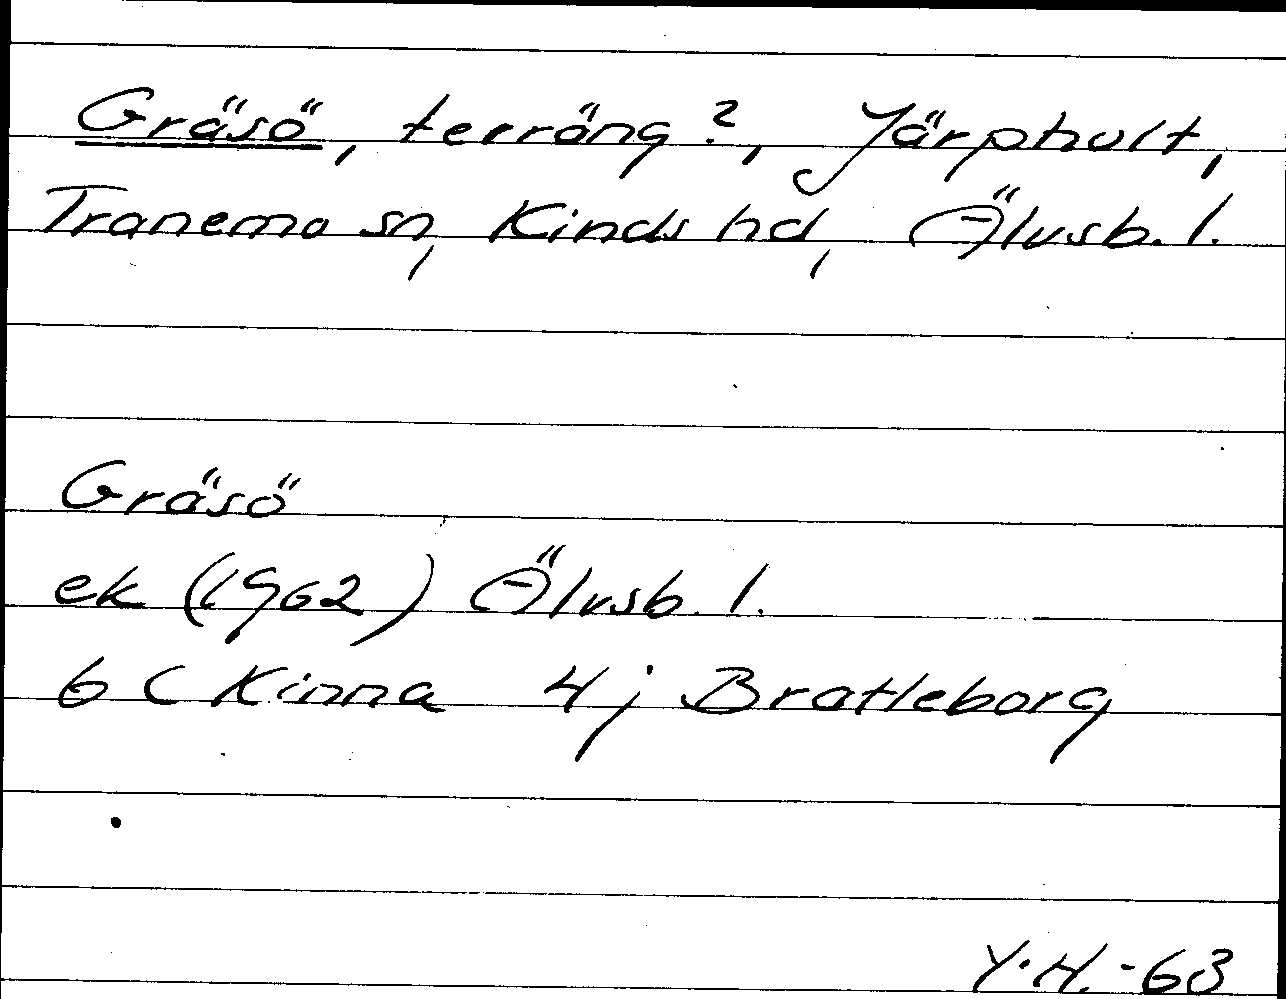 Gräsö, terräng?, Järphult,
Tranemo sn, Kinds hd, Älvsb. l.
Gräsö
ek (1962) Älvsb. l.
6 C Kinna 4j Brattleborg
Y.H. -63